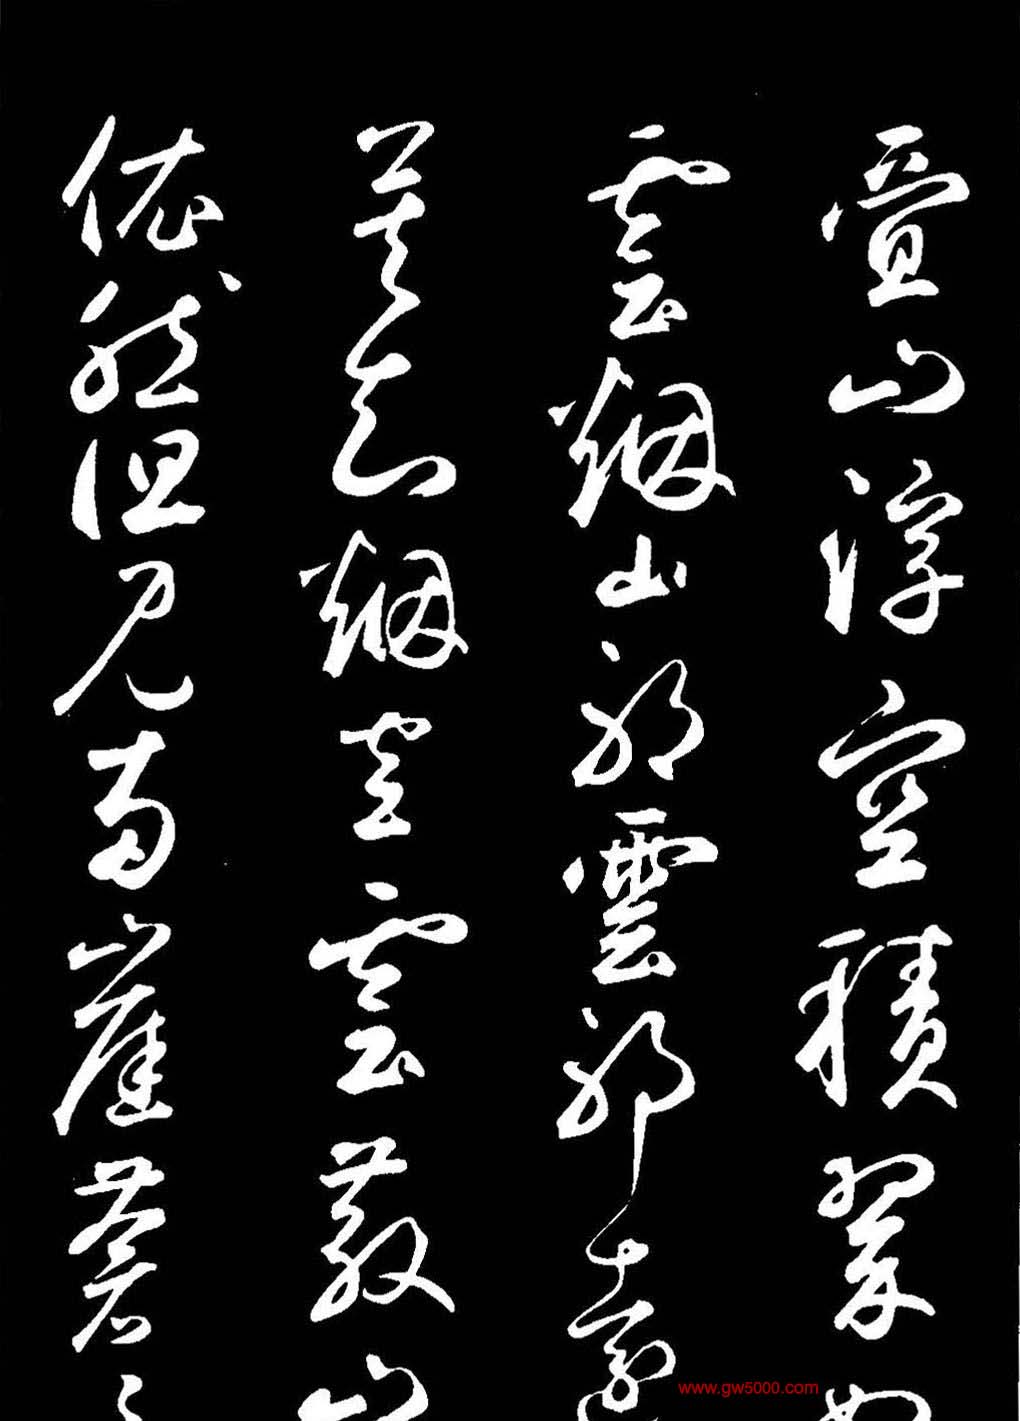 疊山浮空積翠如
雲烟山耶雲耶遠
莫知烟空雲散山
依然但見兩崖蒼
www.gw5000.com